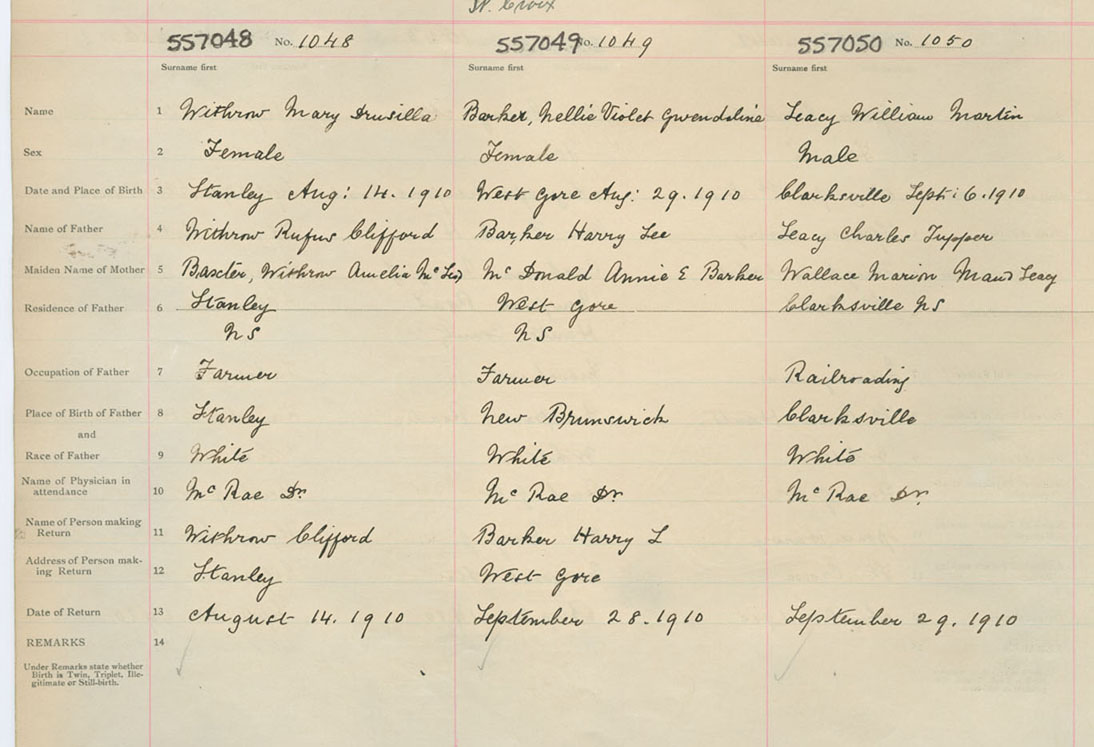 St. Croix
557048 No. 1048 557049 No. 1049 557050 No. 1050
Surname first Surname first Surname first
Name 1 Withrow Mary Drusilla Barker, Nellie Violet Gwendoline Leacy William Martin
Sex 2 Female Female Male
Date and Place of Birth 3 Stanley Aug: 14. 1910 West Gore Aug: 29. 1910 Clarksville Sept: 6. 1910
Name of Father 4 Withrow Rufus Clifford Barker Harry Lee Leacy Charles Tupper
Maiden Name of Mother 5 Baxter, Withrow Amelia Mc Donald Annie E Barker Wallace Marion Maud Leacy
Residence of Father 6 Stanley West Gore Clarksville NS
NS NS
Occupation of Father 7 Farmer Farmer Railroading
Place of Birth of Father 8 Stanley New Brunswick Clarksville
and
Race of Father 9 White White White
Name of Physician in
attendance 10 Mc Rae Dr. Mc Rae Dr. Mc Rae Dr.
Name of Person making
Return 11 Withrow Clifford Barker Harry L
Address of Person mak-
ing Return 12 Stanley West Gore
Date of Return 13 August 14. 1910 September 28. 1910 September 29. 1910
REMARKS 14
Under Remarks state whether
Birth is Twin, Triplet, Ille-
gitimate or Still-birth.